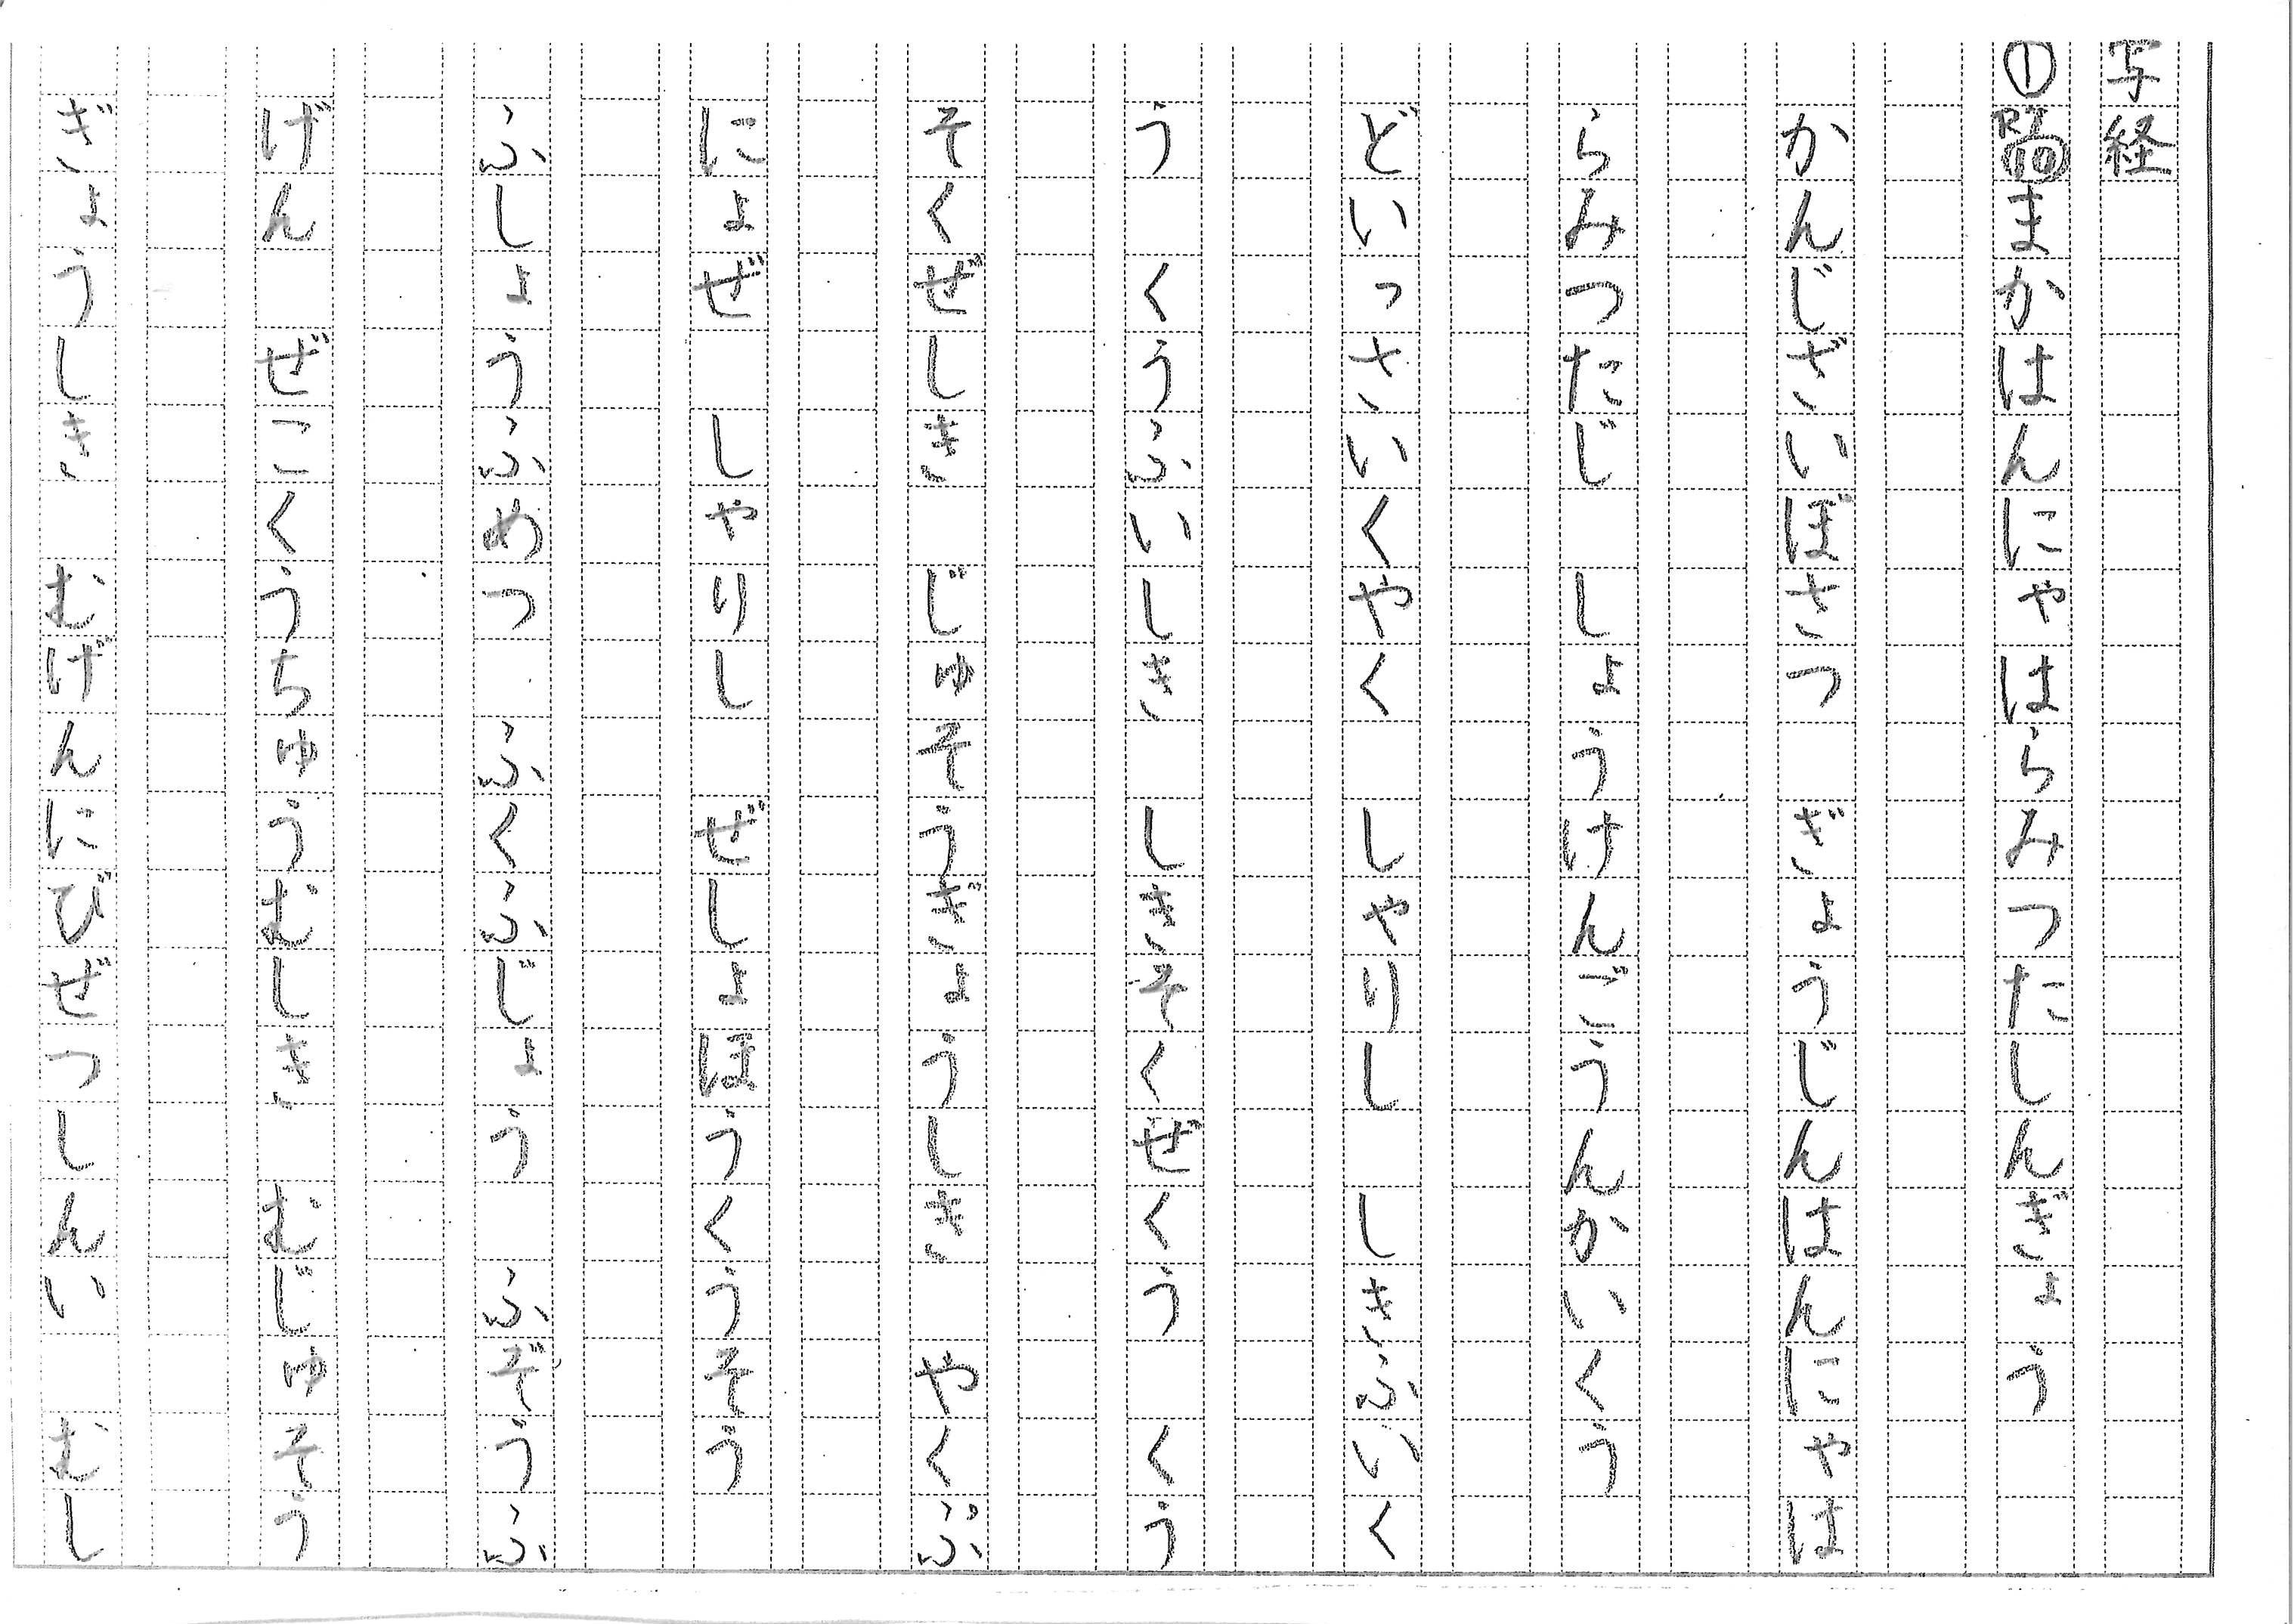 写経
① まかはんにゃはらみつたしんぎょう
かんじざいぼさつ　ぎょうじんはんにゃは
らみつたじ　しょうけんごうんかいくう
どいっさいくやく　しゃりし　しきふいく
う　くうふいしき　しきそくぜくう　くう
そくぜしき　じゅそうぎょうしき　やくぷ
にょぜ　しゃりし　ぜしょほうくうそう
ふしょうふめつ　ふくふじょう　ふぞうふ
げん　ぜこくうちゅうむしき　むじゅそう
ぎょうしき　むげんにびぜつしんい　むし